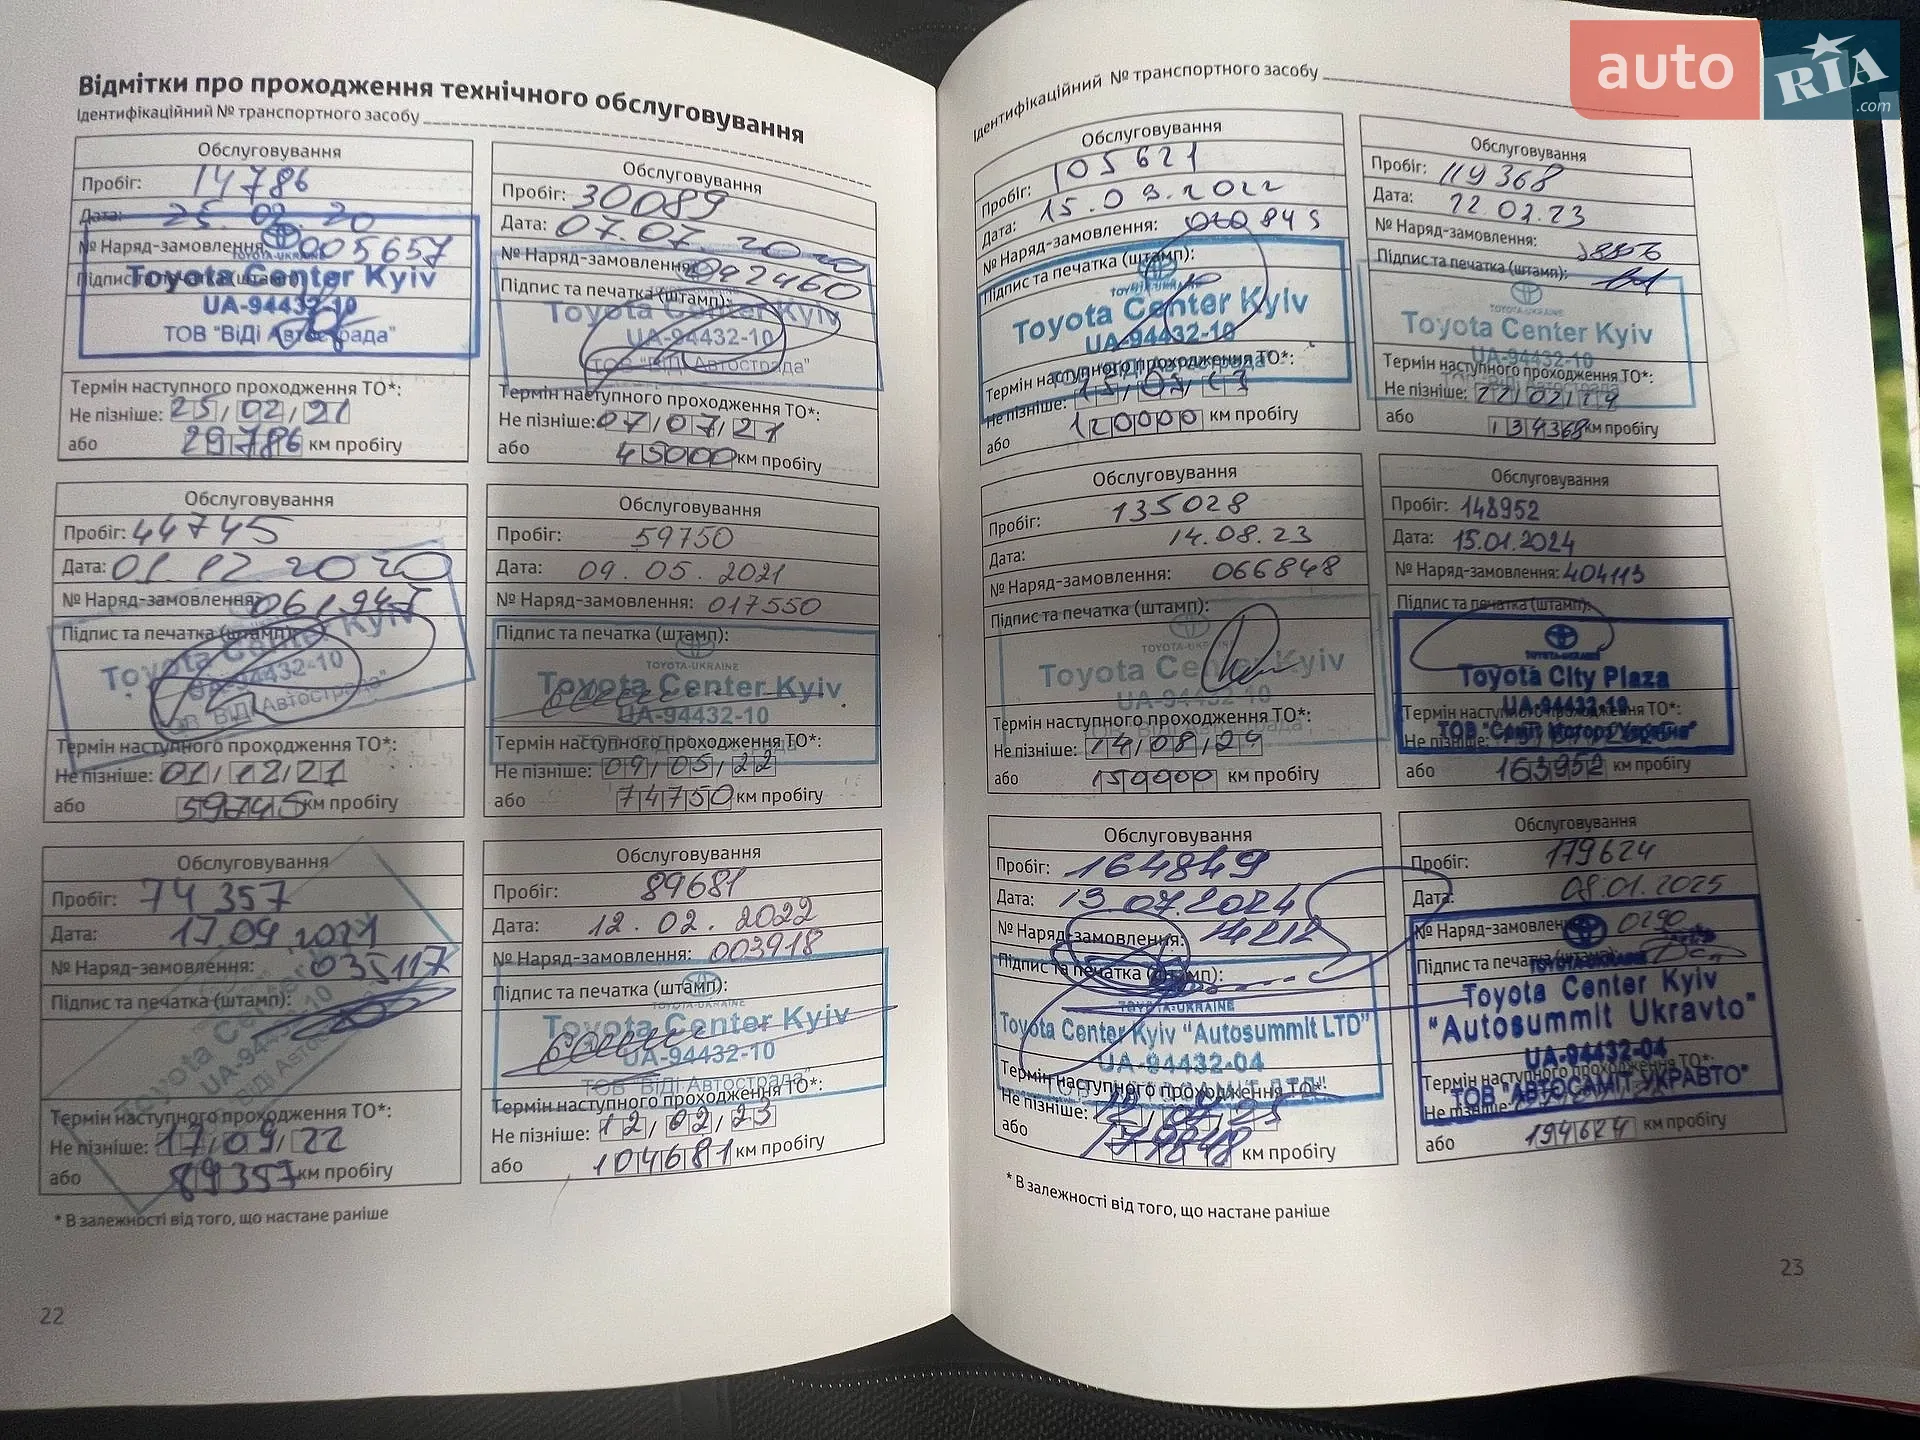 auto
RIA
.com
Відмітки про проходження технічного обслуговування
Ідентифікаційний № транспортного засобу
Обслуговування
Пробіг: 14786
Дата: 25.02.20
№ Наряд-замовлення: 005657
Підпис та печатка (штамп):
Toyota Center Kyiv
UA-94432-10
ТОВ "ВіДі Автострада"
Термін наступного проходження ТО*:
Не пізніше: 25/02/21
або 29786 км пробігу
Обслуговування
Пробіг: 30089
Дата: 07.07.2020
№ Наряд-замовлення: 042460
Підпис та печатка (штамп):
Toyota Center Kyiv
UA-94432-10
ТОВ "ВіДі Автострада"
Термін наступного проходження ТО*:
Не пізніше: 07/07/21
або 45000 км пробігу
Обслуговування
Пробіг: 44745
Дата: 01.12.2020
№ Наряд-замовлення: 061947
Підпис та печатка (штамп):
Toyota Center Kyiv
UA-94432-10
ТОВ "ВіДі Автострада"
Термін наступного проходження ТО*:
Не пізніше: 01/12/21
або 59745 км пробігу
Обслуговування
Пробіг: 59750
Дата: 09.05.2021
№ Наряд-замовлення: 017550
Підпис та печатка (штамп):
TOYOTA-UKRAINE
Toyota Center Kyiv
UA-94432-10
Термін наступного проходження ТО*:
Не пізніше: 09/05/22
або 74750 км пробігу
Обслуговування
Пробіг: 74357
Дата: 17.09.2021
№ Наряд-замовлення: 035117
Підпис та печатка (штамп):
Toyota Center
Термін наступного проходження ТО*:
Не пізніше: 17/09/22
або 89357 км пробігу
Обслуговування
Пробіг: 89681
Дата: 12.02.2022
№ Наряд-замовлення: 003918
Підпис та печатка (штамп):
TOYOTA-UKRAINE
Toyota Center Kyiv
UA-94432-10
ТОВ "ВіДі Автострада"
Термін наступного проходження ТО*:
Не пізніше: 12/02/23
або 104681 км пробігу
* В залежності від того, що настане раніше
22
Ідентифікаційний № транспортного засобу
Обслуговування
Пробіг: 105621
Дата: 15.09.2022
№ Наряд-замовлення:
Підпис та печатка (штамп):
TOYOTA-UKRAINE
Toyota Center Kyiv
UA-94432-10
Термін наступного проходження ТО*:
Не пізніше:
або 120000 км пробігу
Обслуговування
Пробіг: 119368
Дата: 22.02.23
№ Наряд-замовлення:
Підпис та печатка (штамп):
TOYOTA-UKRAINE
Toyota Center Kyiv
UA-94432-10
Термін наступного проходження ТО*:
Не пізніше: 22/02/24
або 134368 км пробігу
Обслуговування
Пробіг: 135028
Дата: 14.08.23
№ Наряд-замовлення: 066848
Підпис та печатка (штамп):
TOYOTA-UKRAINE
Toyota Center Kyiv
UA-94432-10
Термін наступного проходження ТО*:
Не пізніше: 14/08/24
або 150000 км пробігу
Обслуговування
Пробіг: 148952
Дата: 15.01.2024
№ Наряд-замовлення: 404113
Підпис та печатка (штамп):
Toyota City Plaza
UA-94432-19
Термін наступного проходження ТО*:
Не пізніше:
або 163952 км пробігу
Обслуговування
Пробіг: 164849
Дата: 13.07.2024
№ Наряд-замовлення:
Підпис та печатка (штамп):
TOYOTA-UKRAINE
Toyota Center Kyiv "Autosummit LTD"
UA-94432-04
Термін наступного проходження ТО*:
Не пізніше:
або км пробігу
Обслуговування
Пробіг: 179624
Дата: 08.01.2025
№ Наряд-замовлення: 0290
Підпис та печатка (штамп):
Toyota Center Kyiv
"Autosummit Ukravto"
UA-94432-04
Термін наступного проходження ТО*:
ТОВ "АВТОСАМІТ УКРАВТО"
Не пізніше:
або 194624 км пробігу
* В залежності від того, що настане раніше
23